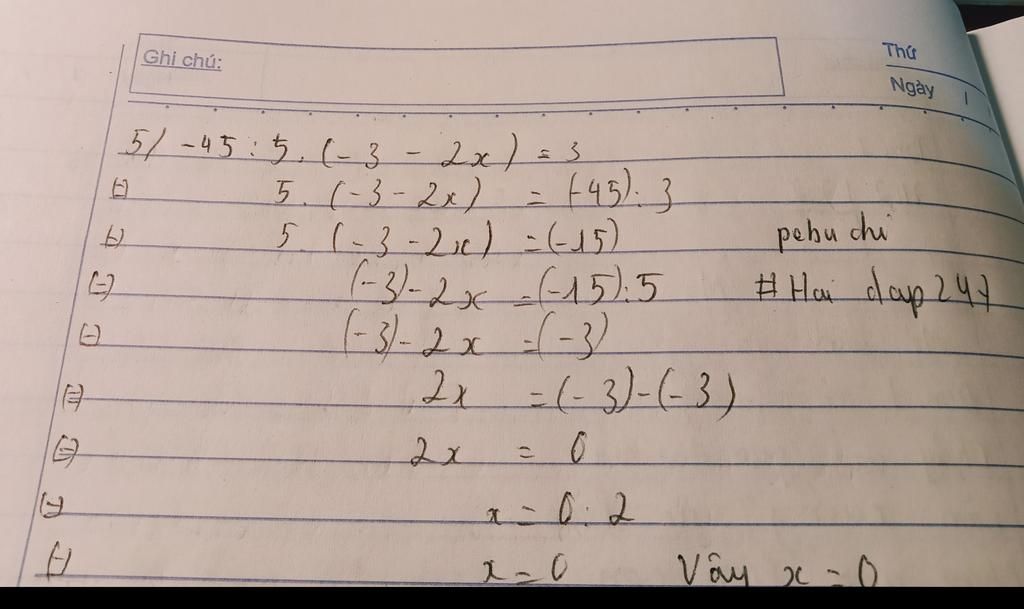 Ghi chú:
Thứ
Ngày
5/ -45 : 5. (-3 - 2x) = 3
(=) 5. (-3 - 2x) = (-45) : 3
(=) 5. (-3 - 2x) = (-15) pebu chi
(=) (-3) - 2x = (-15) : 5 # Hoi dap 247
(=) (-3) - 2x = (-3)
(=) 2x = (-3) - (-3)
(=) 2x = 0
(=) x = 0 : 2
(=) x = 0 Vây x = 0